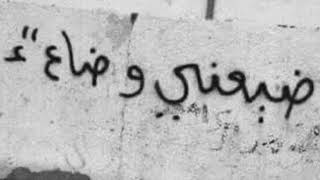 ضيعني و ضاع "ء